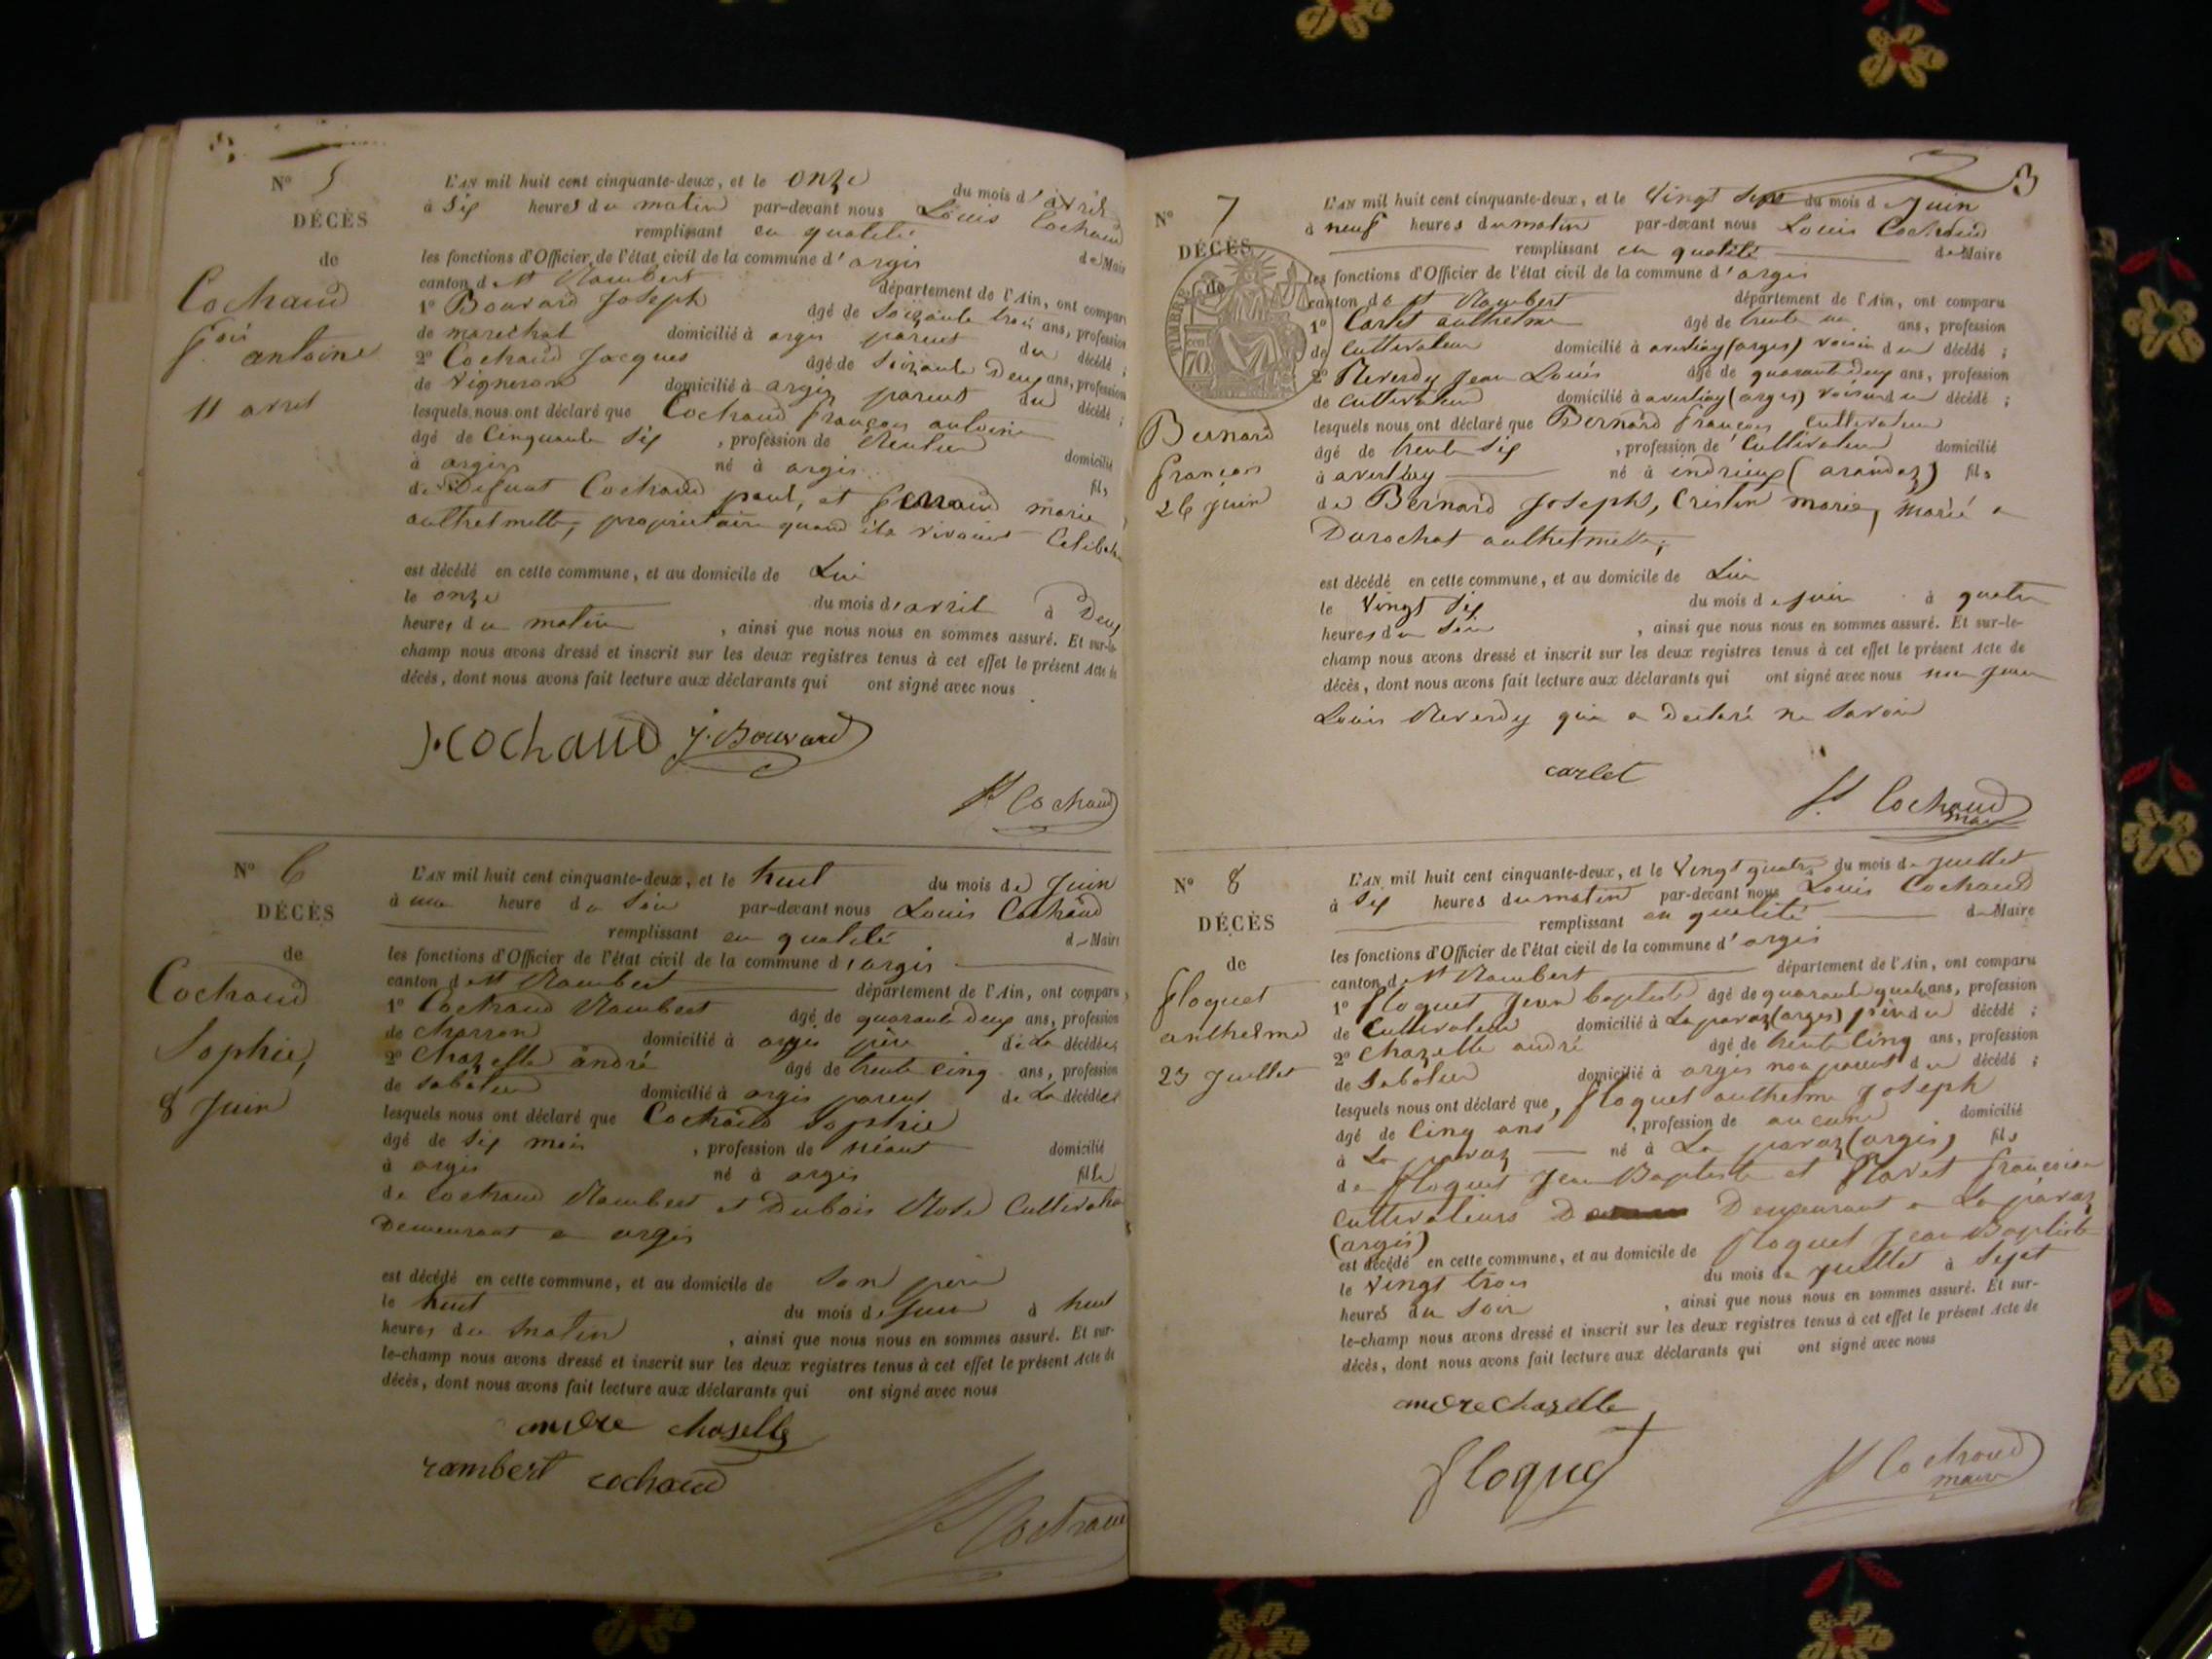 N° 5
DÉCÈS
de
Cochaud
f.ois
antoine
11 avril
L'AN mil huit cent cinquante-deux, et le onze du mois d'avril
à six heures du matin par-devant nous Louis Cochaud
remplissant en qualité de Maire
les fonctions d'Officier de l'état civil de la commune d'argis
canton de St Rambert département de l'Ain, ont comparu
1° Bouvard Joseph âgé de soixante trois ans, profession
de marechal domicilié à argis parent du décédé ;
2° Cochaud Jacques âgé de soixante Deux ans, profession
de vigneron domicilié à argis parent du décédé ;
lesquels nous ont déclaré que Cochaud françois antoine
âgé de Cinquante six , profession de Rentier domicilié
à argis né à argis fils
de Defunt Cochaud paul, et marie
anthelmette, propriétaire quand ils vivaient Celibataire
est décédé en cette commune, et au domicile de Lui
le onze du mois d'avril à Deux
heures du matin , ainsi que nous nous en sommes assuré. Et sur-le-
champ nous avons dressé et inscrit sur les deux registres tenus à cet effet le présent Acte de
décès, dont nous avons fait lecture aux déclarants qui ont signé avec nous
J. COchaud J. Bouvard
Ls Cochaud
N° 6
DÉCÈS
de
Cochaud
Sophie,
8 Juin
L'AN mil huit cent cinquante-deux, et le huit du mois de Juin
à une heure du soir par-devant nous Louis Cochaud
remplissant en qualité de Maire
les fonctions d'Officier de l'état civil de la commune d'argis
canton de St Rambert département de l'Ain, ont comparu,
1° Cochaud Rambert âgé de quarante deux ans, profession
de charron domicilié à argis père de La décédée ;
2° Chazelle andré âgé de trente cinq ans, profession
de sabotier domicilié à argis parent de La décédée ;
lesquels nous ont déclaré que Cochaud Sophie
âgé de six mois , profession de néant domicilié
à argis né à argis fille
de Cochaud Rambert et Dubois Rose Cultivateurs
Demeurant a argis
est décédé en cette commune, et au domicile de Son père
le huit du mois de Juin à huit
heures du matin , ainsi que nous nous en sommes assuré. Et sur-
le-champ nous avons dressé et inscrit sur les deux registres tenus à cet effet le présent Acte de
décès, dont nous avons fait lecture aux déclarants qui ont signé avec nous
andre chazelle
rambert cochaud
Ls Cochaud
3
N° 7
DÉCÈS
de
TIMBRE
70
Bernard
françois
26 juin
L'AN mil huit cent cinquante-deux, et le Vingt Sept du mois de Juin
à neuf heures du matin par-devant nous Louis Cochaud
remplissant en qualité de Maire
les fonctions d'Officier de l'état civil de la commune d'argis
canton de St Rambert département de l'Ain, ont comparu
1° Carlet anthelme âgé de trente un ans, profession
de Cultivateur domicilié à (argis) voisin du décédé ;
2° Reverdy Jean Louis âgé de quarante deux ans, profession
de cultivateur domicilié à (argis) voisin du décédé ;
lesquels nous ont déclaré que Bernard françois Cultivateur
âgé de trente six , profession de Cultivateur domicilié
à né à indrieux (arandas) fils
de Bernard Joseph, Cristin marie, marié a
Durochat anthelmette,
est décédé en cette commune, et au domicile de Lui
le Vingt six du mois de juin à quatre
heures du soir , ainsi que nous nous en sommes assuré. Et sur-le-
champ nous avons dressé et inscrit sur les deux registres tenus à cet effet le présent Acte de
décès, dont nous avons fait lecture aux déclarants qui ont signé avec nous non Jean
Louis Reverdy qui a Declaré ne Savoir
carlet
Ls Cochaud
maire
N° 8
DÉCÈS
de
floquet
anthelme
23 Juillet
L'AN mil huit cent cinquante-deux, et le Vingt quatre du mois de juillet
à six heures du matin par-devant nous Louis Cochaud
remplissant en qualité de Maire
les fonctions d'Officier de l'état civil de la commune d'argis
canton de St Rambert département de l'Ain, ont comparu
1° floquet Jean baptiste âgé de quarante quatre ans, profession
de Cultivateur domicilié à La paraz (argis) père du décédé ;
2° Chazelle andré âgé de trente Cinq ans, profession
de Sabotier domicilié à argis non parent du décédé ;
lesquels nous ont déclaré que, floquet anthelme Joseph
âgé de Cinq ans , profession de aucune domicilié
à La paraz né à La paraz (argis) fils
de floquet Jean Baptiste et françoise
Cultivateurs Demeurant a La paraz
(argis)
est décédé en cette commune, et au domicile de floquet Jean Baptiste
le Vingt trois du mois de juillet à Sept
heures du Soir , ainsi que nous nous en sommes assuré. Et sur-
le-champ nous avons dressé et inscrit sur les deux registres tenus à cet effet le présent Acte de
décès, dont nous avons fait lecture aux déclarants qui ont signé avec nous
andre chazelle
floquet
Ls Cochaud
maire